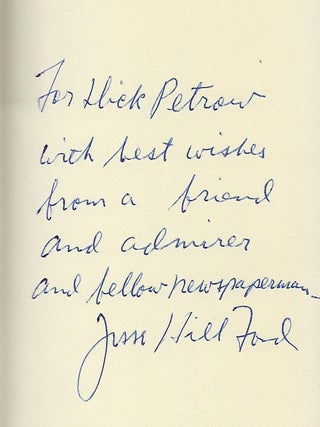 For Dick Petrow
with best wishes
from a friend
and admirer
and fellow newspaperman—
Jesse Hill Ford